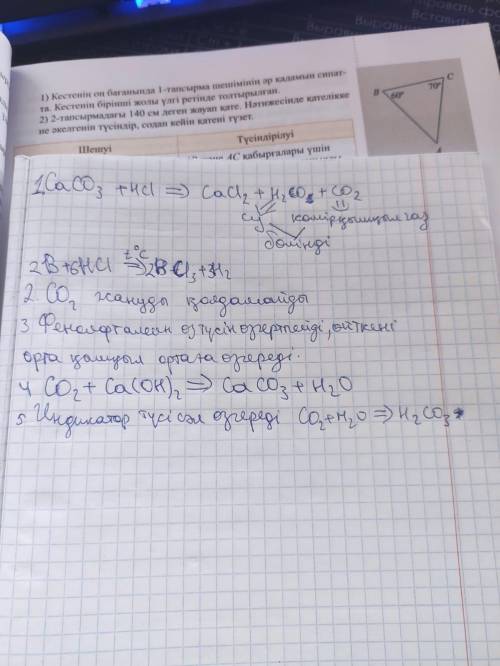 1) Кестенің оң бағанында 1-тапсырма шешімінің әр қадамын сипат-
та. Кестенің бірінші жолы үлгі ретінде толтырылған.
2) 2-тапсырмадағы 140 см деген жауап қате. Нәтижесінде қателікке
не әкелгенін түсіндір, содан кейін қатені түзет.
Шешуі Түсіндірілуі
AC қабырғалары үшін
B 60° 70° C
1. CaCO3 + HCl ⇒ CaCl2 + H2O + CO2
су көмірқышқыл газ
бөлінді
2B + 6HCl t°C ⇒ 2BCl3 + 3H2
2. CO2 жануды қолдамайды
3 Фенолфталеин өз түсін өзгертпейді, өйткені
орта қышқыл ортаға өзгереді.
4 CO2 + Ca(OH)2 ⇒ CaCO3 + H2O
5 Индикатор түсі сәл өзгереді CO2 + H2O ⇒ H2CO3